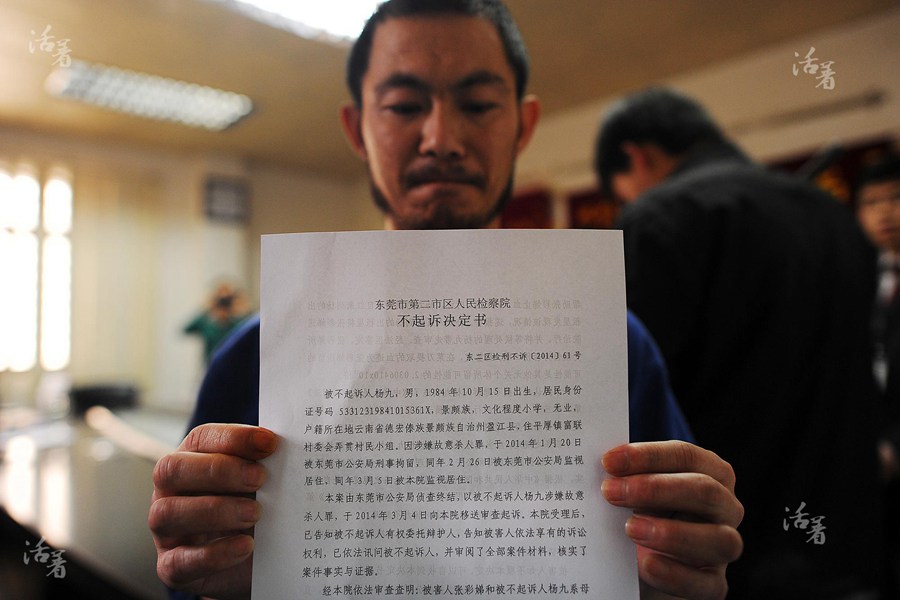 活着
活着
东莞市第二市区人民检察院
不起诉决定书
东二区检刑不诉〔2014〕61号
被不起诉人杨九，男，1984年10月15日出生，居民身份
证号码 53312319841015361X，景颇族，文化程度小学，无业，
户籍所在地云南省德宏傣族景颇族自治州盈江县，住平厚镇富联
村委会弄贯村民小组。因涉嫌故意杀人罪，于2014年1月20日
被东莞市公安局刑事拘留，同年2月26日被东莞市公安局监视
居住，同年3月5日被本院监视居住。
本案由东莞市公安局侦查终结，以被不起诉人杨九涉嫌故意
杀人罪，于2014年3月4日向本院移送审查起诉。本院受理后，
已告知被不起诉人有权委托辩护人，告知被害人依法享有的诉讼
权利，已依法讯问被不起诉人，并审阅了全部案件材料，核实了
案件事实与证据。
经本院依法审查查明：被害人张彩娣和被不起诉人杨九系母
活着
活着